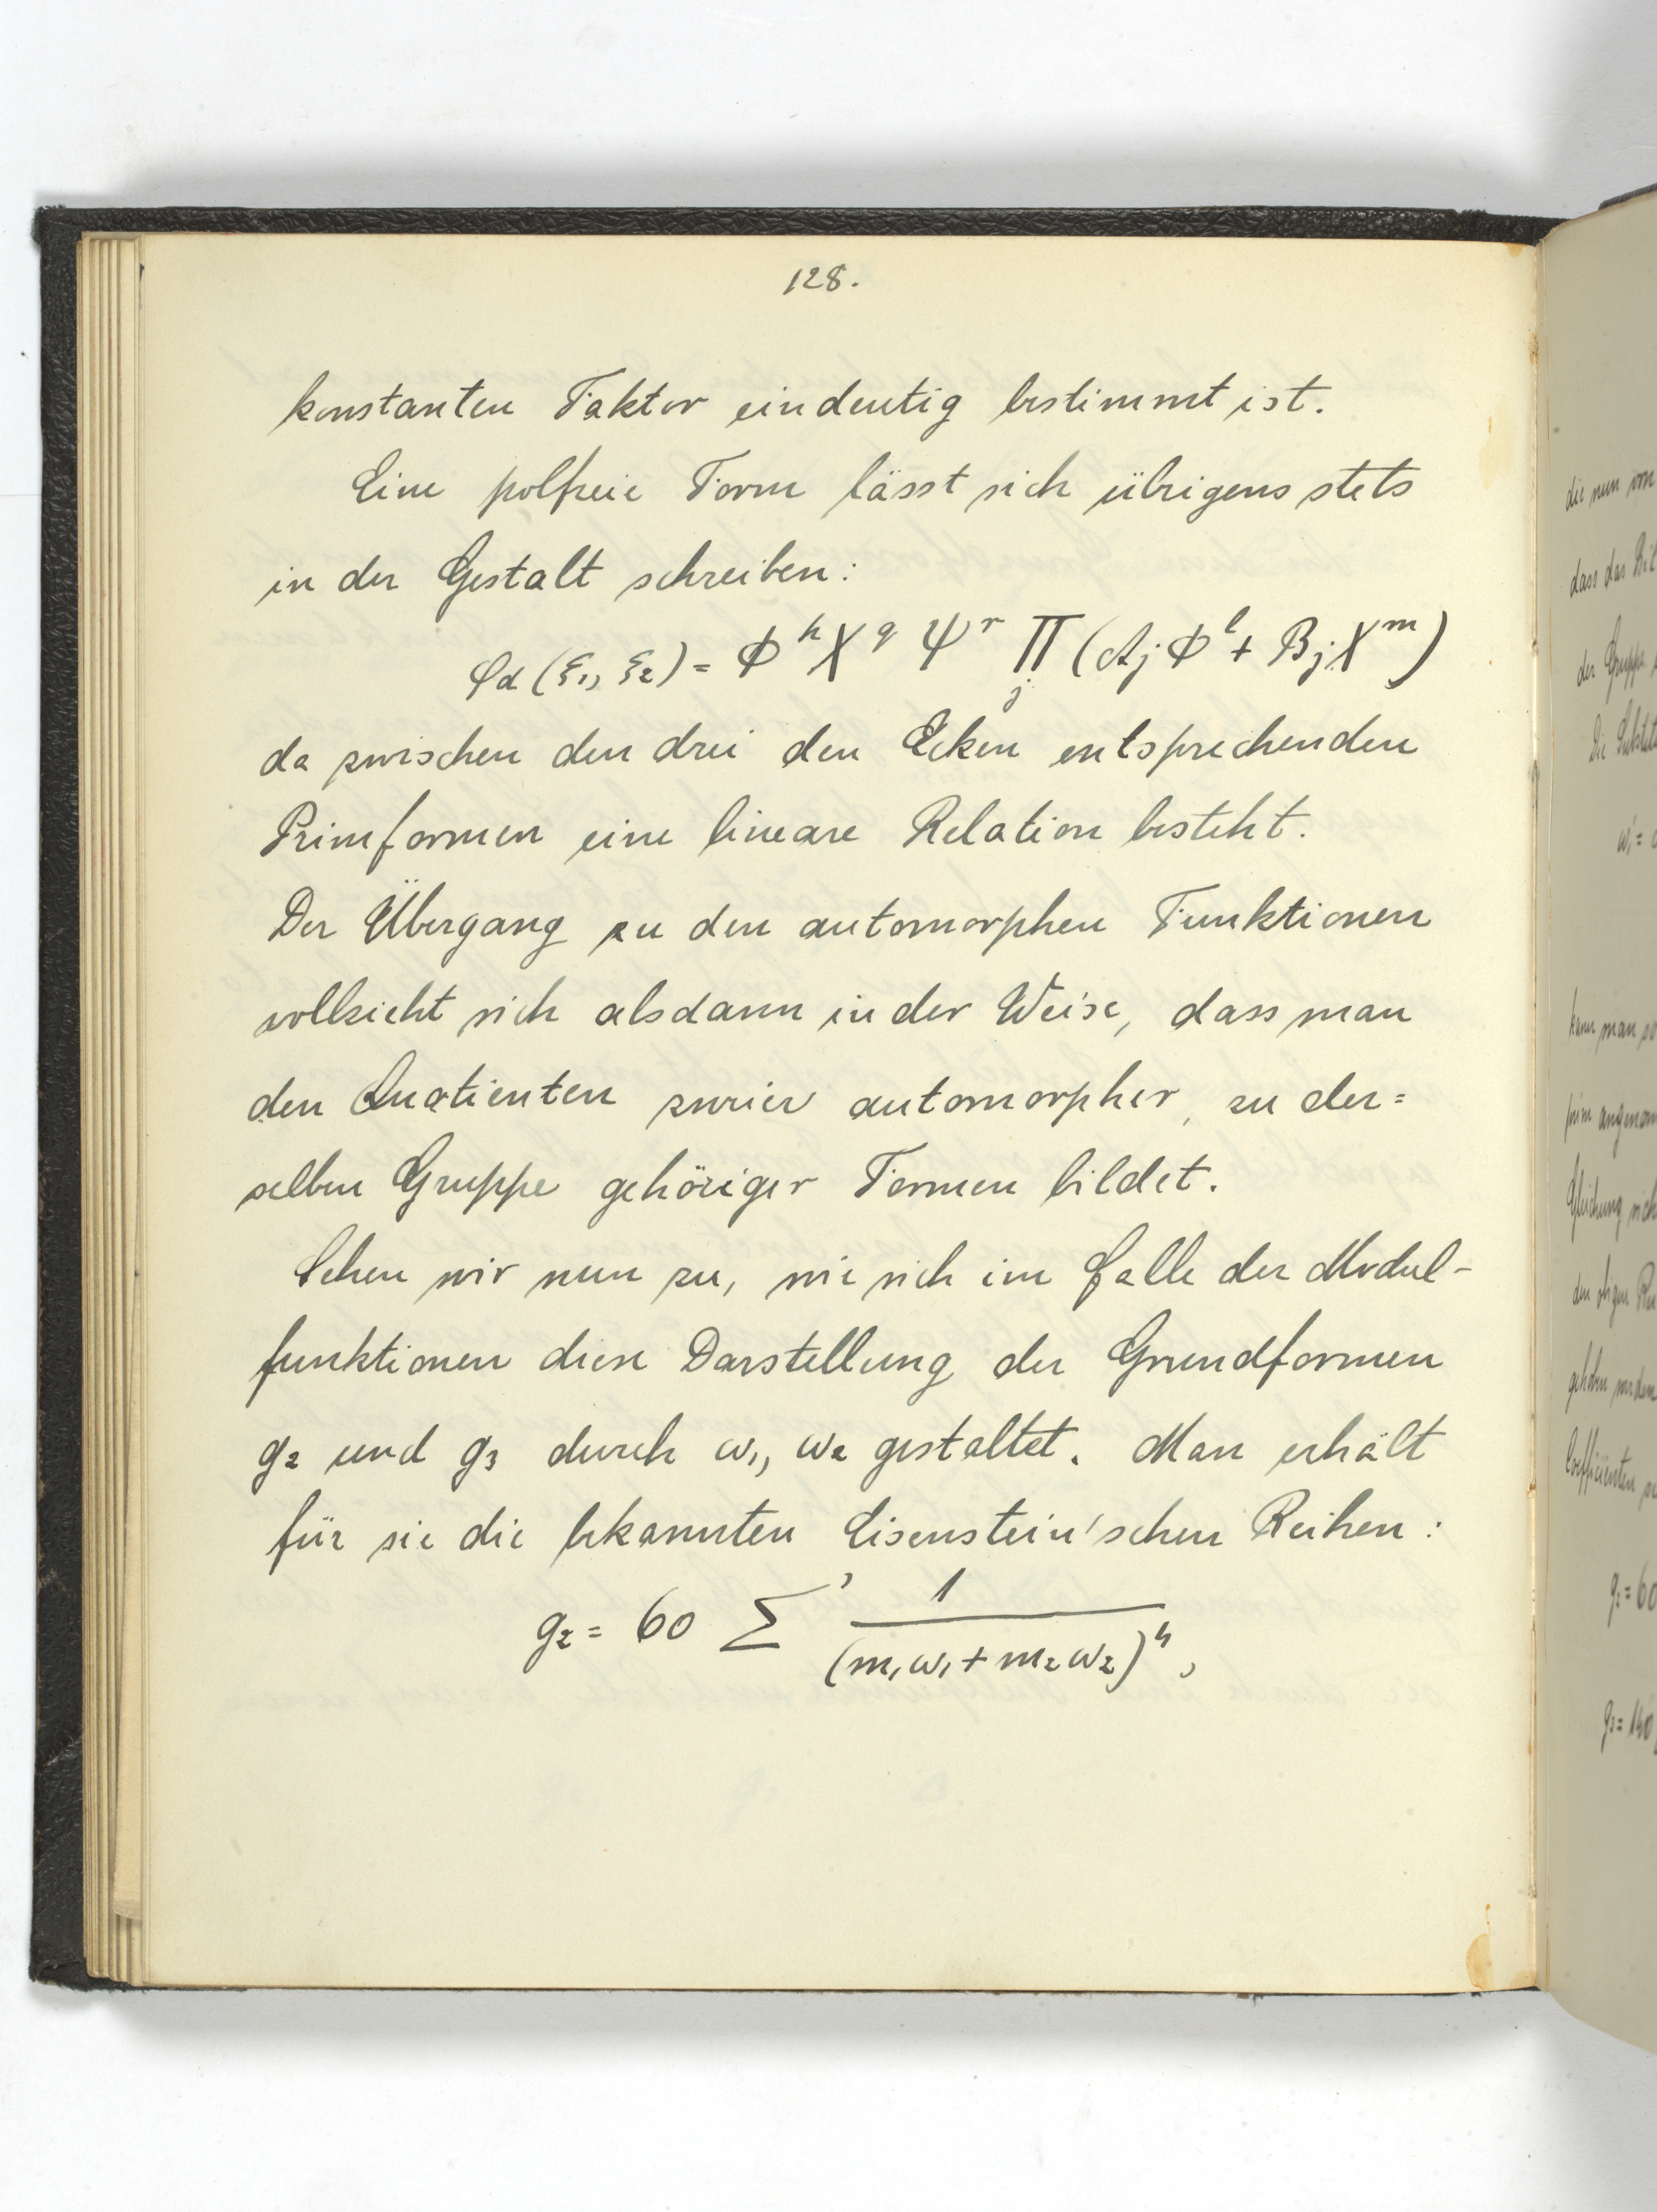 128.
konstanten Faktor eindeutig bestimmt ist.
Eine polfreie Form lässt sich übrigens stets
in der Gestalt schreiben:
φ_d (ξ₁, ξ₂) = Φ^h X^q Ψ^r ∏_j (A_j Φ^l + B_j X^m)
da zwischen den drei den Ecken entsprechenden
Primformen eine lineare Relation besteht.
Der Übergang zu den automorphen Funktionen
vollzieht sich alsdann in der Weise, dass man
den Quotienten zweier automorpher, zu der=
selben Gruppe gehöriger Formen bildet.
Sehen wir nun zu, wie sich im Falle der Modul-
funktionen diese Darstellung der Grundformen
g₂ und g₃ durch ω₁, ω₂ gestaltet. Man erhält
für sie die bekannten Eisenstein'schen Reihen:
g₂ = 60 ∑' 1/(m₁ω₁ + m₂ω₂)⁴,
die nun von
dass das
der Gruppe
Die
kann man so
prim
Gleichung sich
den obigen
gehoben werden
Coefficienten
g₂ = 60
g₃ = 140